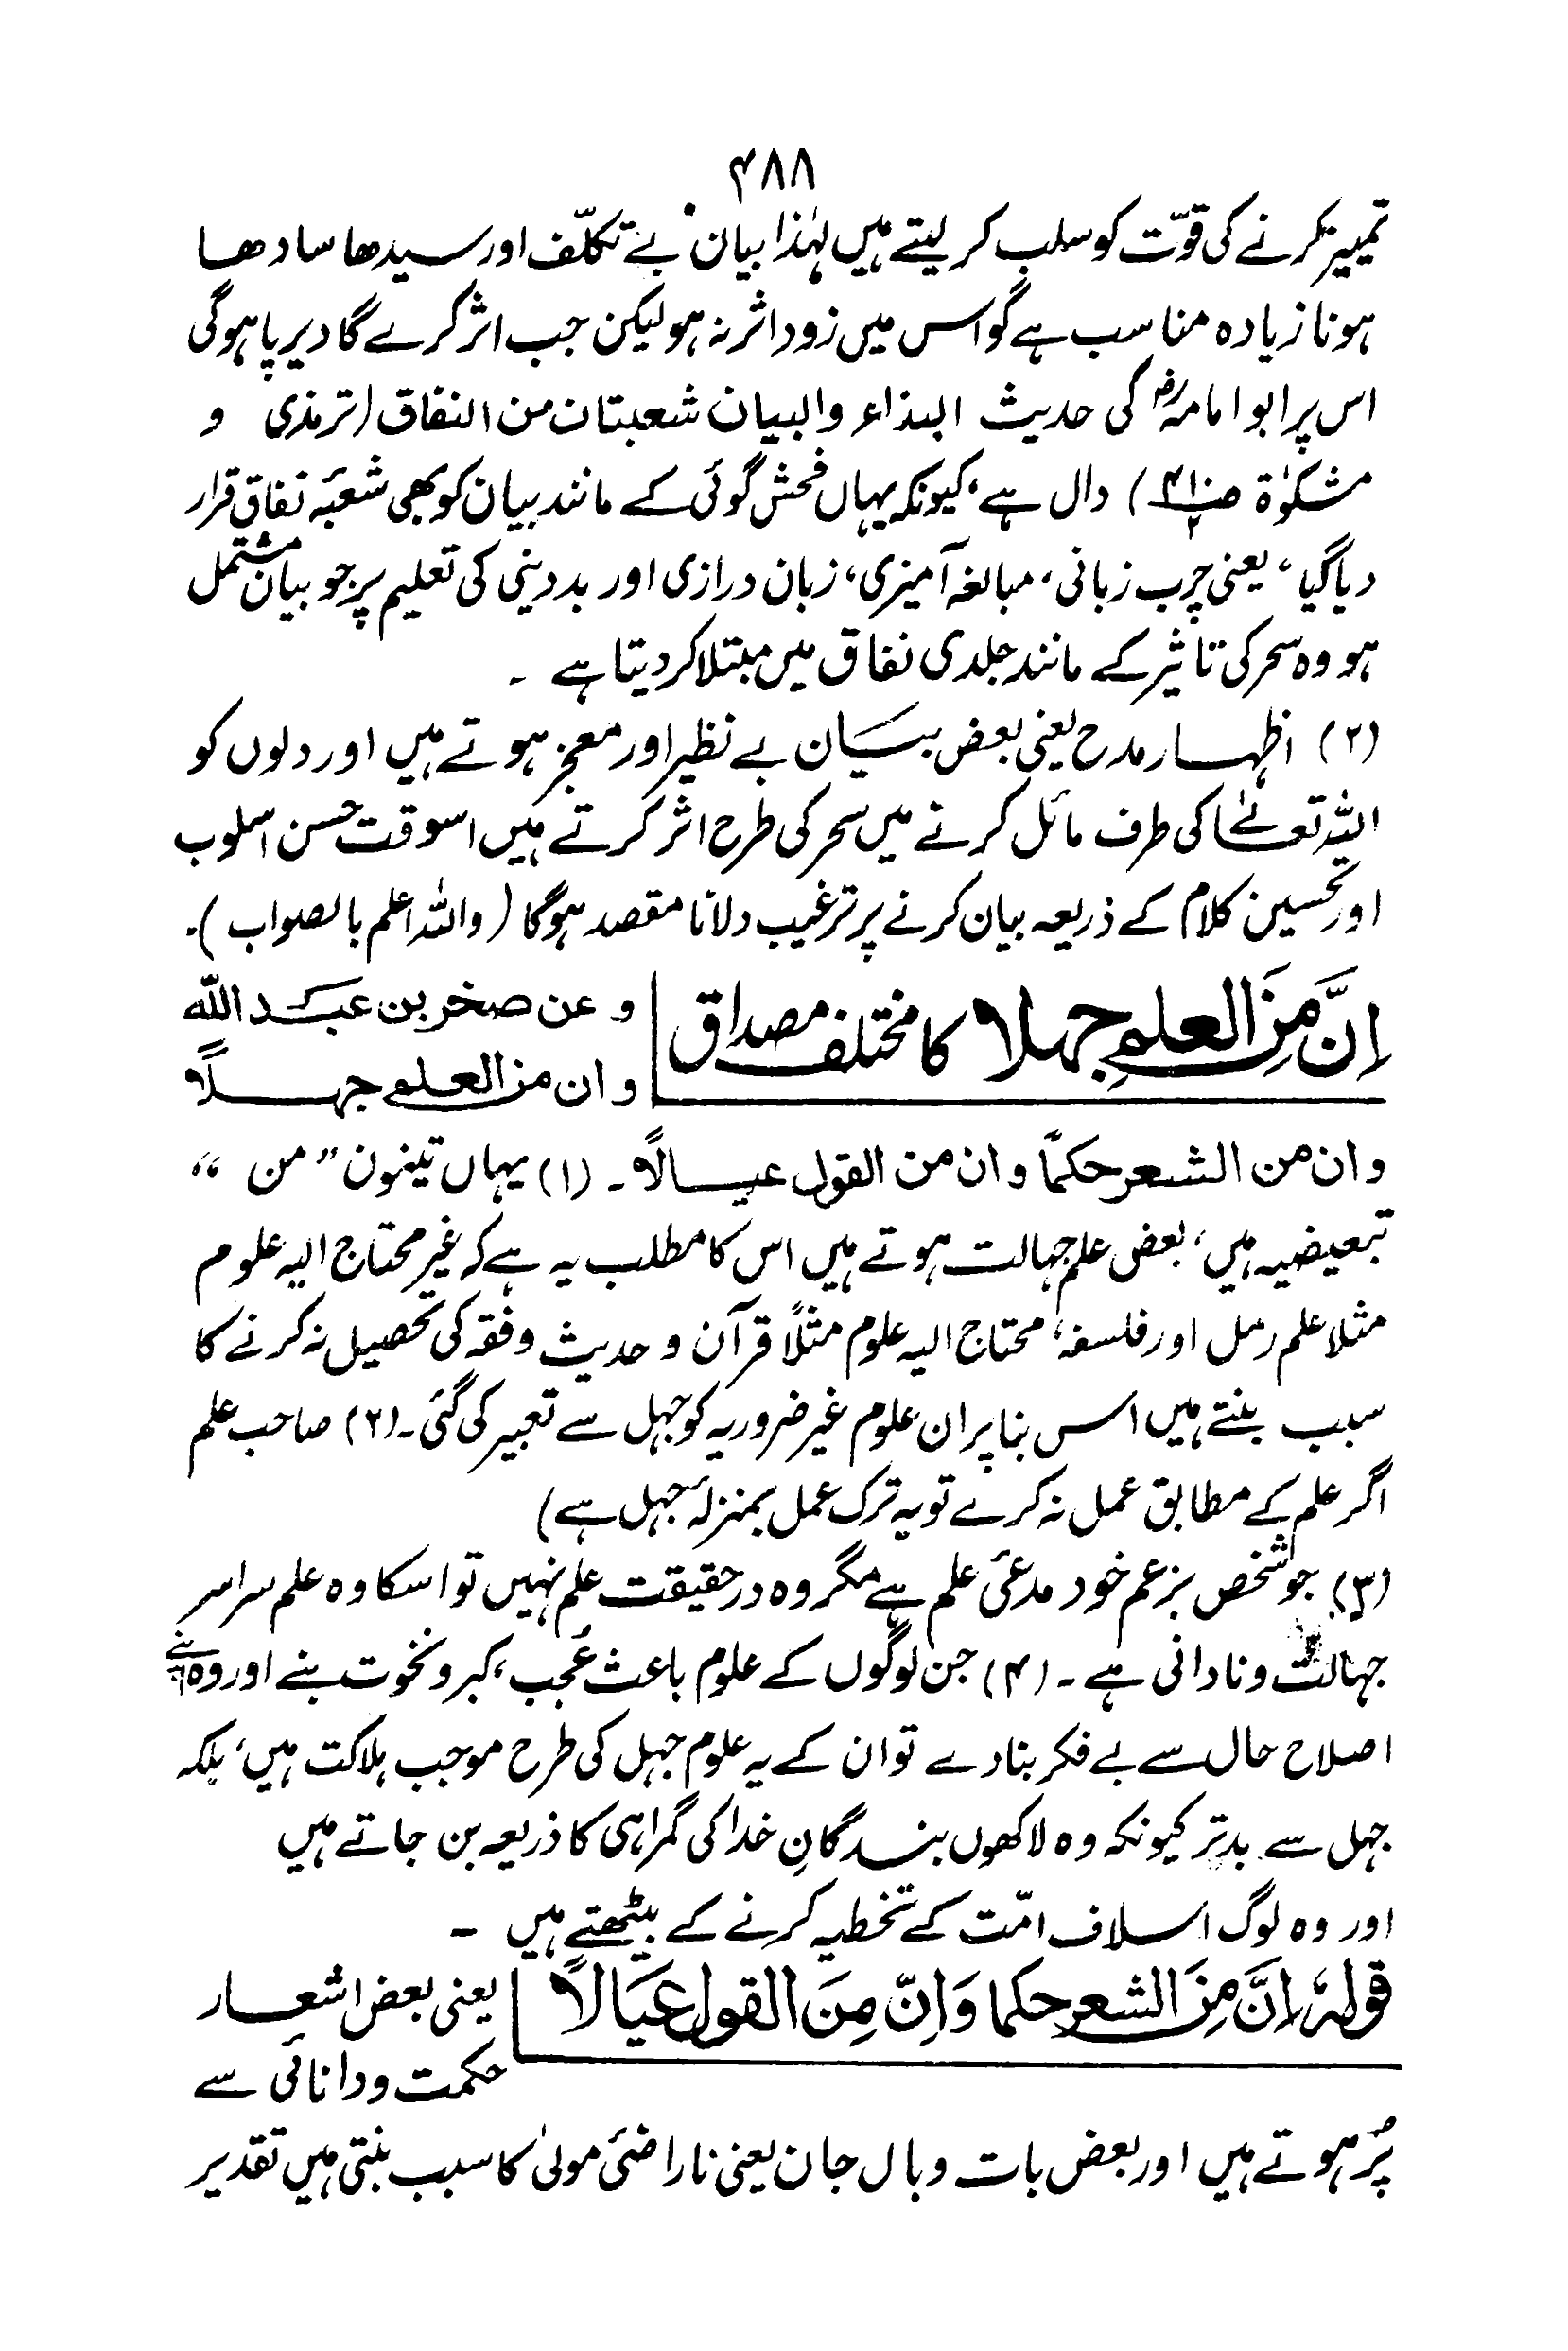 ۴۸۸
تمییز کرنے کی قوّت کو سلب کر لیتے ہیں لہٰذا بیان بے تکلّف اور سیدھا سادھا
ہونا زیادہ مناسب ہے گو اس میں زود اثر نہ ہو لیکن جب اثر کرے گا دیرپا ہوگی
اس پر ابو امامہؓ کی حدیث البذاء والبیان شعبتان من النفاق (ترمذی و
مشکوٰۃ صـ۴۱۰ ۲) دال ہے، کیونکہ یہاں فحش گوئی کے مانند بیان کو بھی شعبۂ نفاق قرار
دیا گیا، یعنی چرب زبانی، مبالغہ آمیزی، زبان درازی اور بد دینی کی تعلیم پر جو بیان مشتمل
ہو وہ سحر کی تاثیر کے مانند جلدی نفاق میں مبتلا کر دیتا ہے ۔
(۲) اظہار مدح یعنی بعض بیان بے نظیر اور معجز ہوتے ہیں اور دلوں کو
اللہ تعالےٰ کی طرف مائل کرنے میں سحر کی طرح اثر کرتے ہیں اسوقت حسن اسلوب
اور تحسین کلام کے ذریعہ بیان کرنے پر ترغیب دلانا مقصد ہوگا (واللہ اعلم بالصواب)۔
اِنَّ مِنَ العلمِ جہلا کا مختلف مصداق
و عن صخر بن عبد الله
و ان من العلم جہلًا
و ان من الشعر حکمًا و ان من القول عیالًا۔ (۱) یہاں تینون ”من“
تبعیضیہ ہیں، بعض علم جہالت ہوتے ہیں اس کا مطلب یہ ہے کہ غیر محتاج الیہ علوم
مثلا علم رمل اور فلسفہ، محتاج الیہ علوم مثلًا قرآن و حدیث و فقہ کی تحصیل نہ کرنے کا
سبب بنتے ہیں اس بنا پر ان علوم غیر ضروریہ کو جہل سے تعبیر کی گئی۔ (۲) صاحب علم
اگر علم کے مطابق عمل نہ کرے تو یہ ترک عمل بمنزلۂ جہل ہے)
(۳) جو شخص بزعم خود مدعئ علم ہے مگر وہ درحقیقت علم نہیں تو اسکا وہ علم سراسر
جہالت و نادانی ہے ۔ (۴) جن لوگوں کے علوم باعث عُجب، کبر و نخوت بنے اور وہ اپنے
اصلاح حال سے بے فکر بنا دے تو ان کے یہ علوم جہل کی طرح موجب ہلاکت ہیں، بلکہ
جہل سے بدتر کیونکہ وہ لاکھوں بندگانِ خدا کی گمراہی کا ذریعہ بن جاتے ہیں
اور وہ لوگ اسلاف امّت کے تخطیہ کرنے کے بیٹھتے ہیں ۔
قولہٗ اِنَّ مِنَ الشعر حکما وَاِنّ مِنَ القول عَیَالًا
یعنی بعض اشعار
حکمت و دانائی سے
پُر ہوتے ہیں اور بعض بات وبال جان یعنی ناراضئ مولیٰ کا سبب بنتی ہیں تقدیر